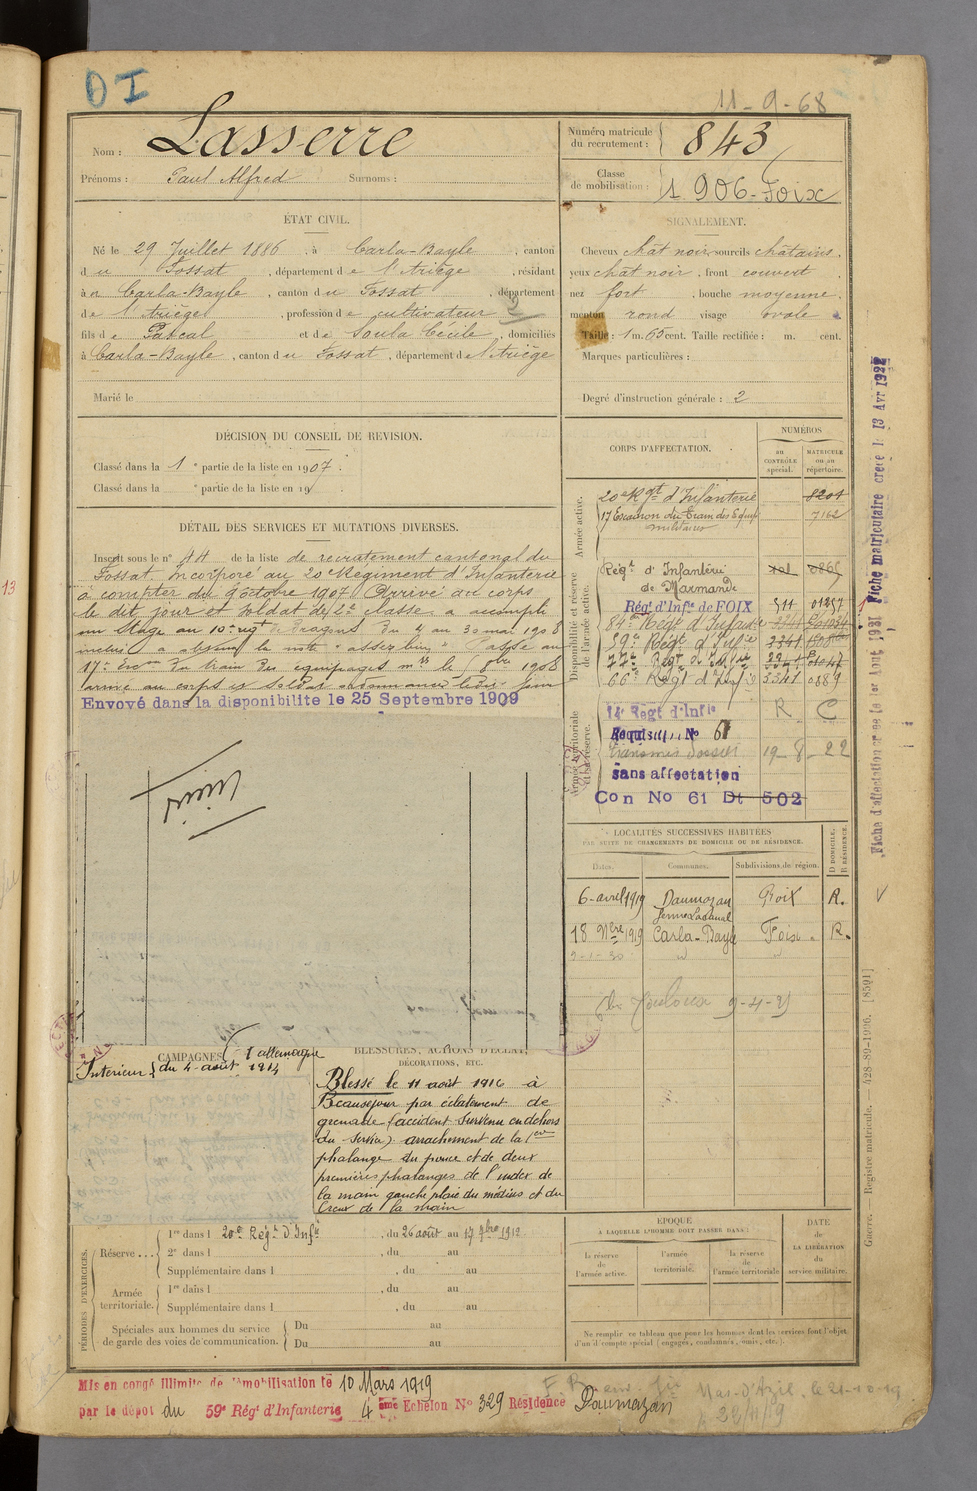 DI
11-9-68
Nom : Lasserre
Prénoms : Paul Alfred Surnoms :
Numéro matricule du recrutement : 843
Classe de mobilisation : 1906-Foix
ÉTAT CIVIL.
Né le 29 Juillet 1886, à Carla-Bayle, canton
du Fossat, département de l'Ariège, résidant
à Carla-Bayle, canton du Fossat, département
de l'Ariège, profession de cultivateur
fils de Pascal et de Soula Cécile, domiciliés
à Carla-Bayle, canton du Fossat, département de l'Ariège
Marié le
SIGNALEMENT.
Cheveux chât noir, sourcils châtains,
yeux chât noir, front couvert
nez fort, bouche moyenne,
menton rond visage ovale
Taille : 1 m. 65 cent. Taille rectifiée : m. cent.
Marques particulières :
Degré d'instruction générale : 2
DÉCISION DU CONSEIL DE REVISION.
Classé dans la 1e partie de la liste en 1907.
Classé dans la e partie de la liste en 19
DÉTAIL DES SERVICES ET MUTATIONS DIVERSES.
Inscrit sous le n° 44 de la liste de recrutement cantonal du
Fossat. Incorporé au 20e Régiment d'Infanterie
à compter du 9 octobre 1907. Arrivé au corps
le dit jour et soldat de 2e classe. a accompli
un stage au 10e regt de Dragons du 4 au 30 mai 1908
inclus a obtenu la note "assez bien" Passé au
17e Escon du train des équipages mres le 1908
Envoyé dans la disponibilite le 25 Septembre 1909
CORPS D'AFFECTATION.
NUMÉROS
au CONTRÔLE spécial.
MATRICULE ou au répertoire.
Armée active.
20e Rgt d'Infanterie 8204
17 Escadron du Train des Equip militaires 7162
Disponibilité et réserve de l'armée active.
Régt d'Infanterie de Marmande
Régt d'Infie de FOIX 511 01257
59e Régt d'Infie 3341
77e Régt d'Infie
66e Régt d'Infie 3341 0889
Armée territoriale et sa réserve.
14e Regt d'Infie R C
61
19-8-22
Sans affectation
Con No 61 Dt 502
LOCALITÉS SUCCESSIVES HABITÉES
PAR SUITE DE CHANGEMENTS DE DOMICILE OU DE RÉSIDENCE.
Dates. Communes. Subdivisions de région. D DOMICILE, R RÉSIDENCE.
6 avril 1919 Daumazan Foix R.
18 9bre 1919 Carla-Bayle Foix. R.
Toulouse 9-4-31
CAMPAGNES
Intérieur du 4 août 1914
BLESSURES, ACTIONS D'ÉCLAT,
DÉCORATIONS, ETC.
Blessé le 11 août 1916 à
Beauséjour par éclatement de
grenade (accident survenu en dehors
du service). arrachement de la 1ère
phalange du pouce et de deux
premières phalanges de l'index de
la main gauche plaie du médius et du
creux de la main
PÉRIODES D'EXERCICES.
Réserve... 1re dans l 20e Régt d'Infie, du 26 août au 17 7bre 1912
2e dans l , du au
Supplémentaire dans l , du au
Armée territoriale. 1re dans l , du au
Supplémentaire dans l , du au
Spéciales aux hommes du service de garde des voies de communication. Du au
Du au
ÉPOQUE
À LAQUELLE L'HOMME DOIT PASSER DANS :
la réserve de l'armée active.
l'armée territoriale.
la réserve de l'armée territoriale
DATE DE LA LIBÉRATION du service militaire.
Ne remplir ce tableau que pour les hommes dont les services font l'objet
d'un décompte spécial (engagés, condamnés, omis, etc.).
Mis en congé illimité de démobilisation le 10 Mars 1919
par le dépot du 59e Régt d'Infanterie 4 eme Echelon No 329 Résidence Daumazan
Mas-d'Azil, le 21-10-19
22/11/19
Fiche matriculaire créée le 13 Avr 1922
Fiche d'affectation créée le 1er Aout 1931
Guerre. — Registre matricule. — 428-89-1906. [8591]
13